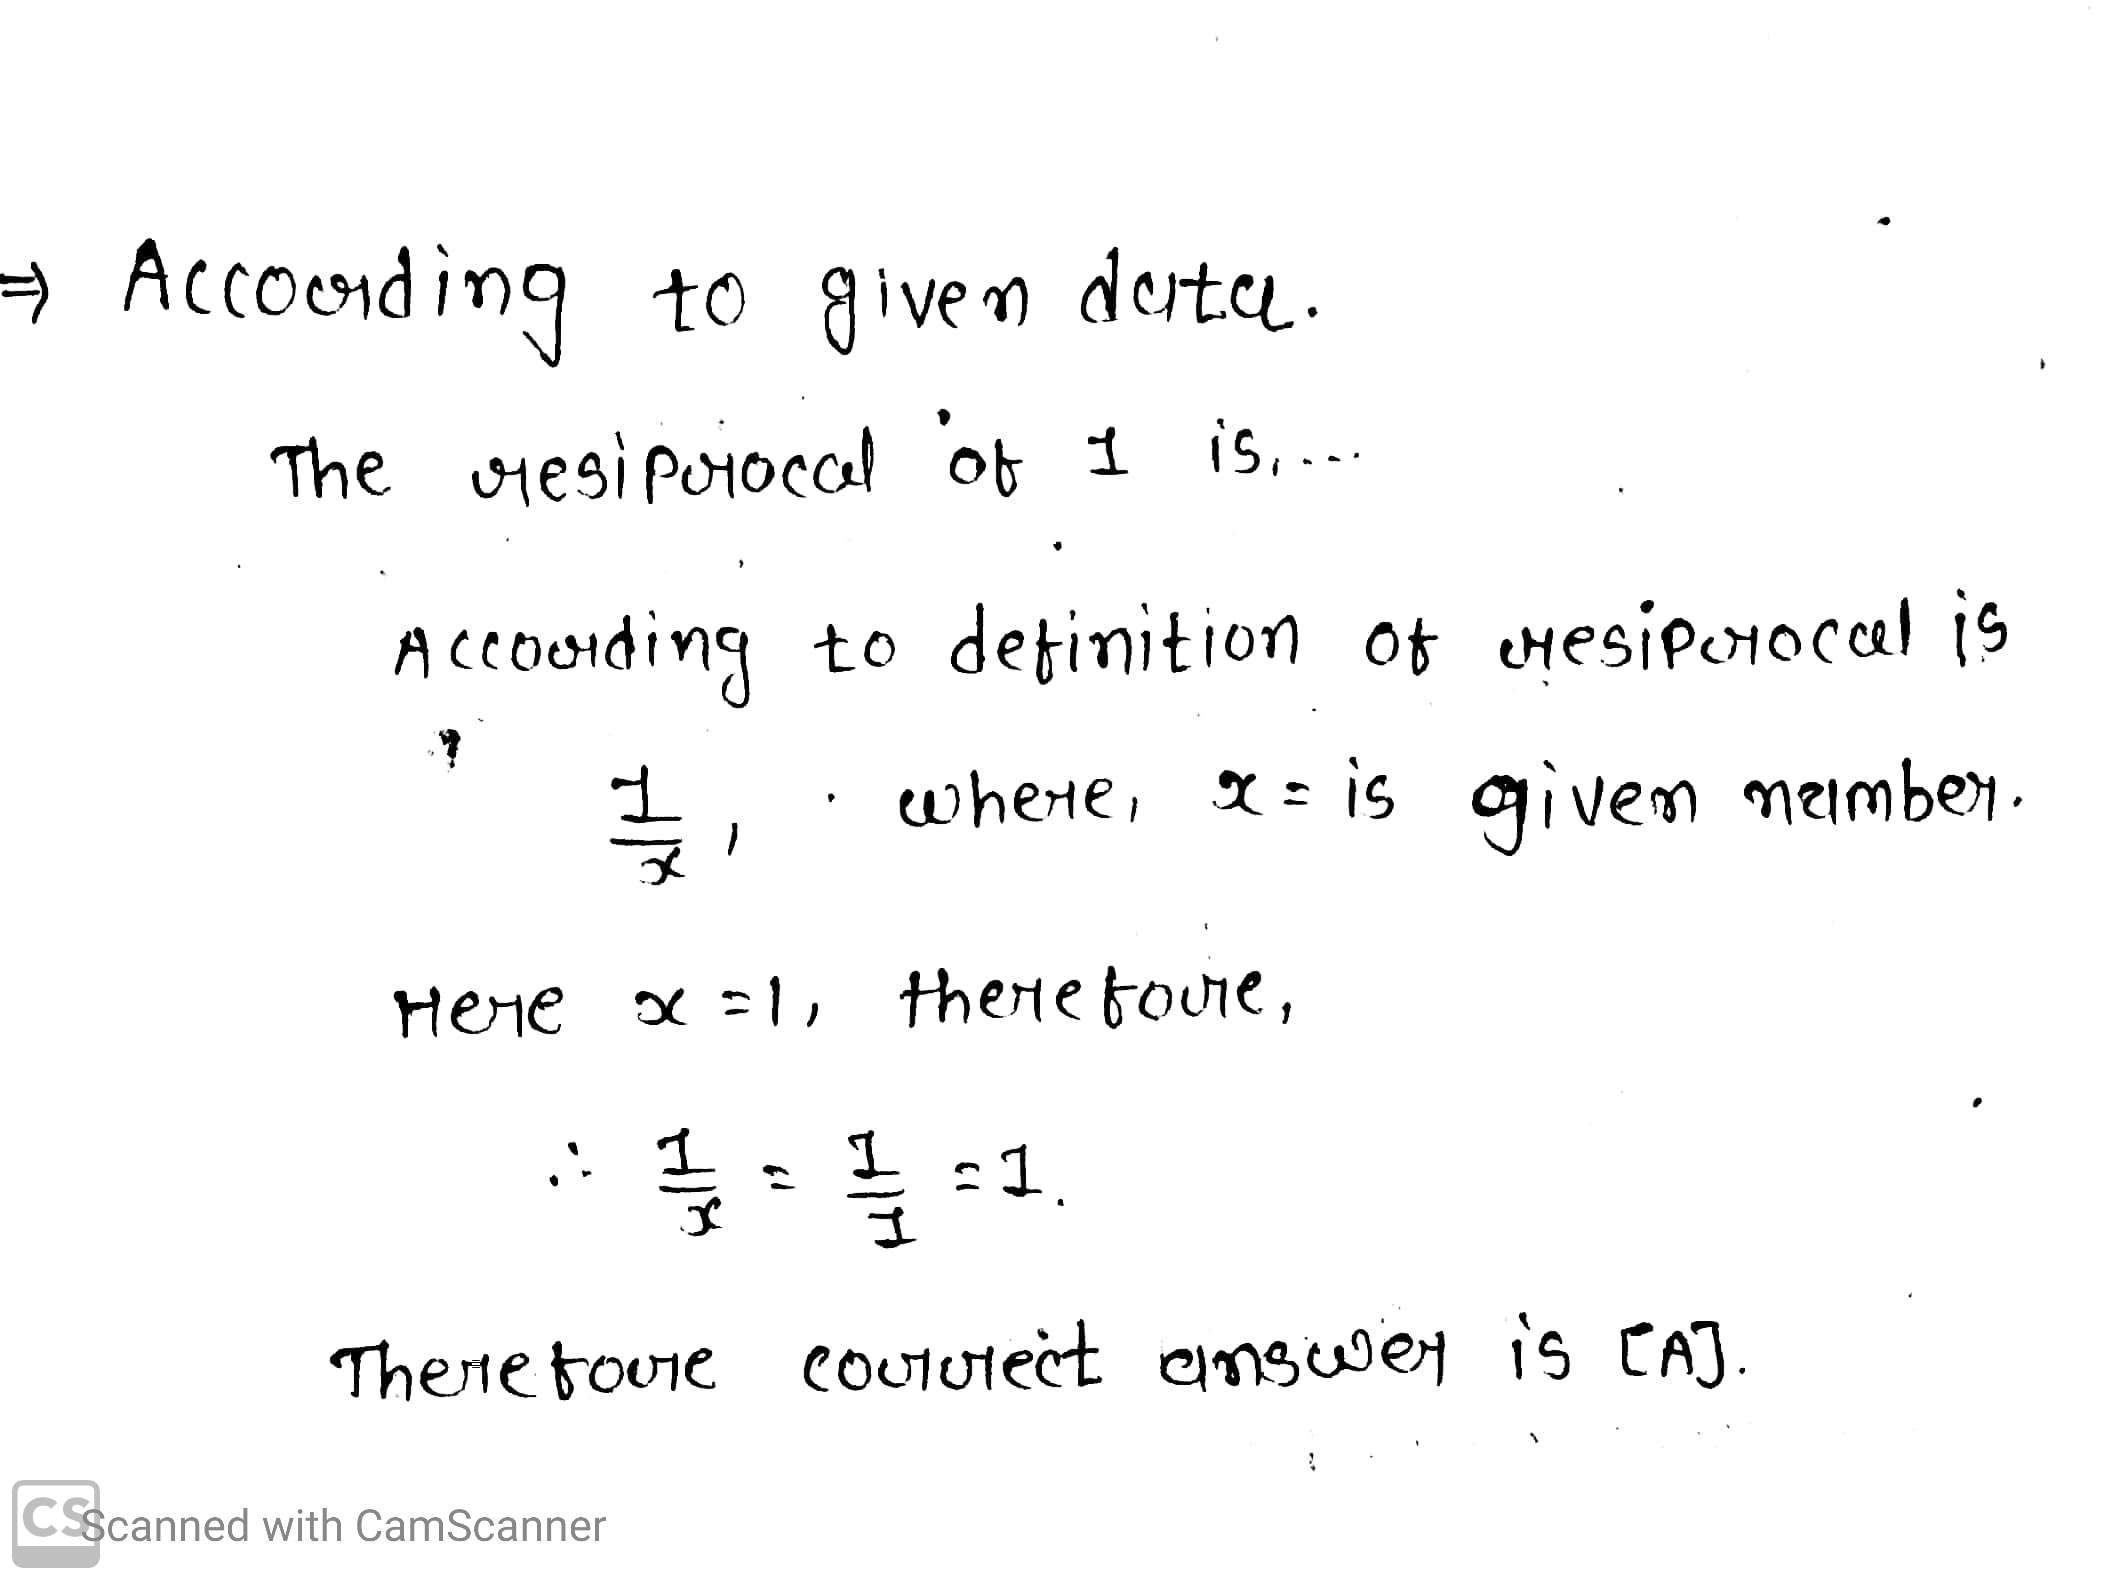 ⇒ According to given data.
The resiprocal of 1 is,...
According to definition of resiprocal is
1/x, where, x = is given number.
Here x = 1, therefore,
∴ 1/x = 1/1 = 1.
Therefore correct answer is [A].
CS Scanned with CamScanner